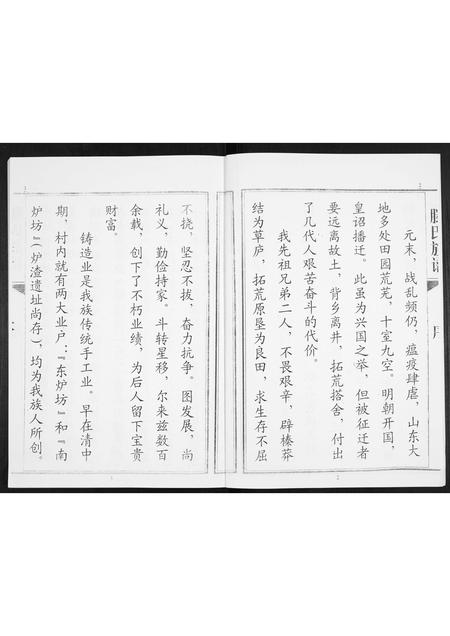 滕氏族谱
元末，战乱频仍，瘟疫肆虐，山东大
地多处田园荒芜，十室九空。明朝开国，
皇诏播迁。此虽为兴国之举，但被征迁者
要远离故土，背乡离井，拓荒搭舍，付出
了几代人艰苦奋斗的代价。
我先祖兄弟二人，不畏艰辛，辟榛莽
结为草庐，拓荒原垦为良田，求生存不屈
不挠，坚忍不拔，奋力抗争。图发展，尚
礼义，勤俭持家。斗转星移，尔来兹数百
余载，创下了不朽业绩，为后人留下宝贵
财富。
铸造业是我族传统手工业。早在清中
期，村内就有两大业户：『东炉坊』和『南
炉坊』(炉渣遗址尚存)，均为我族人所创。